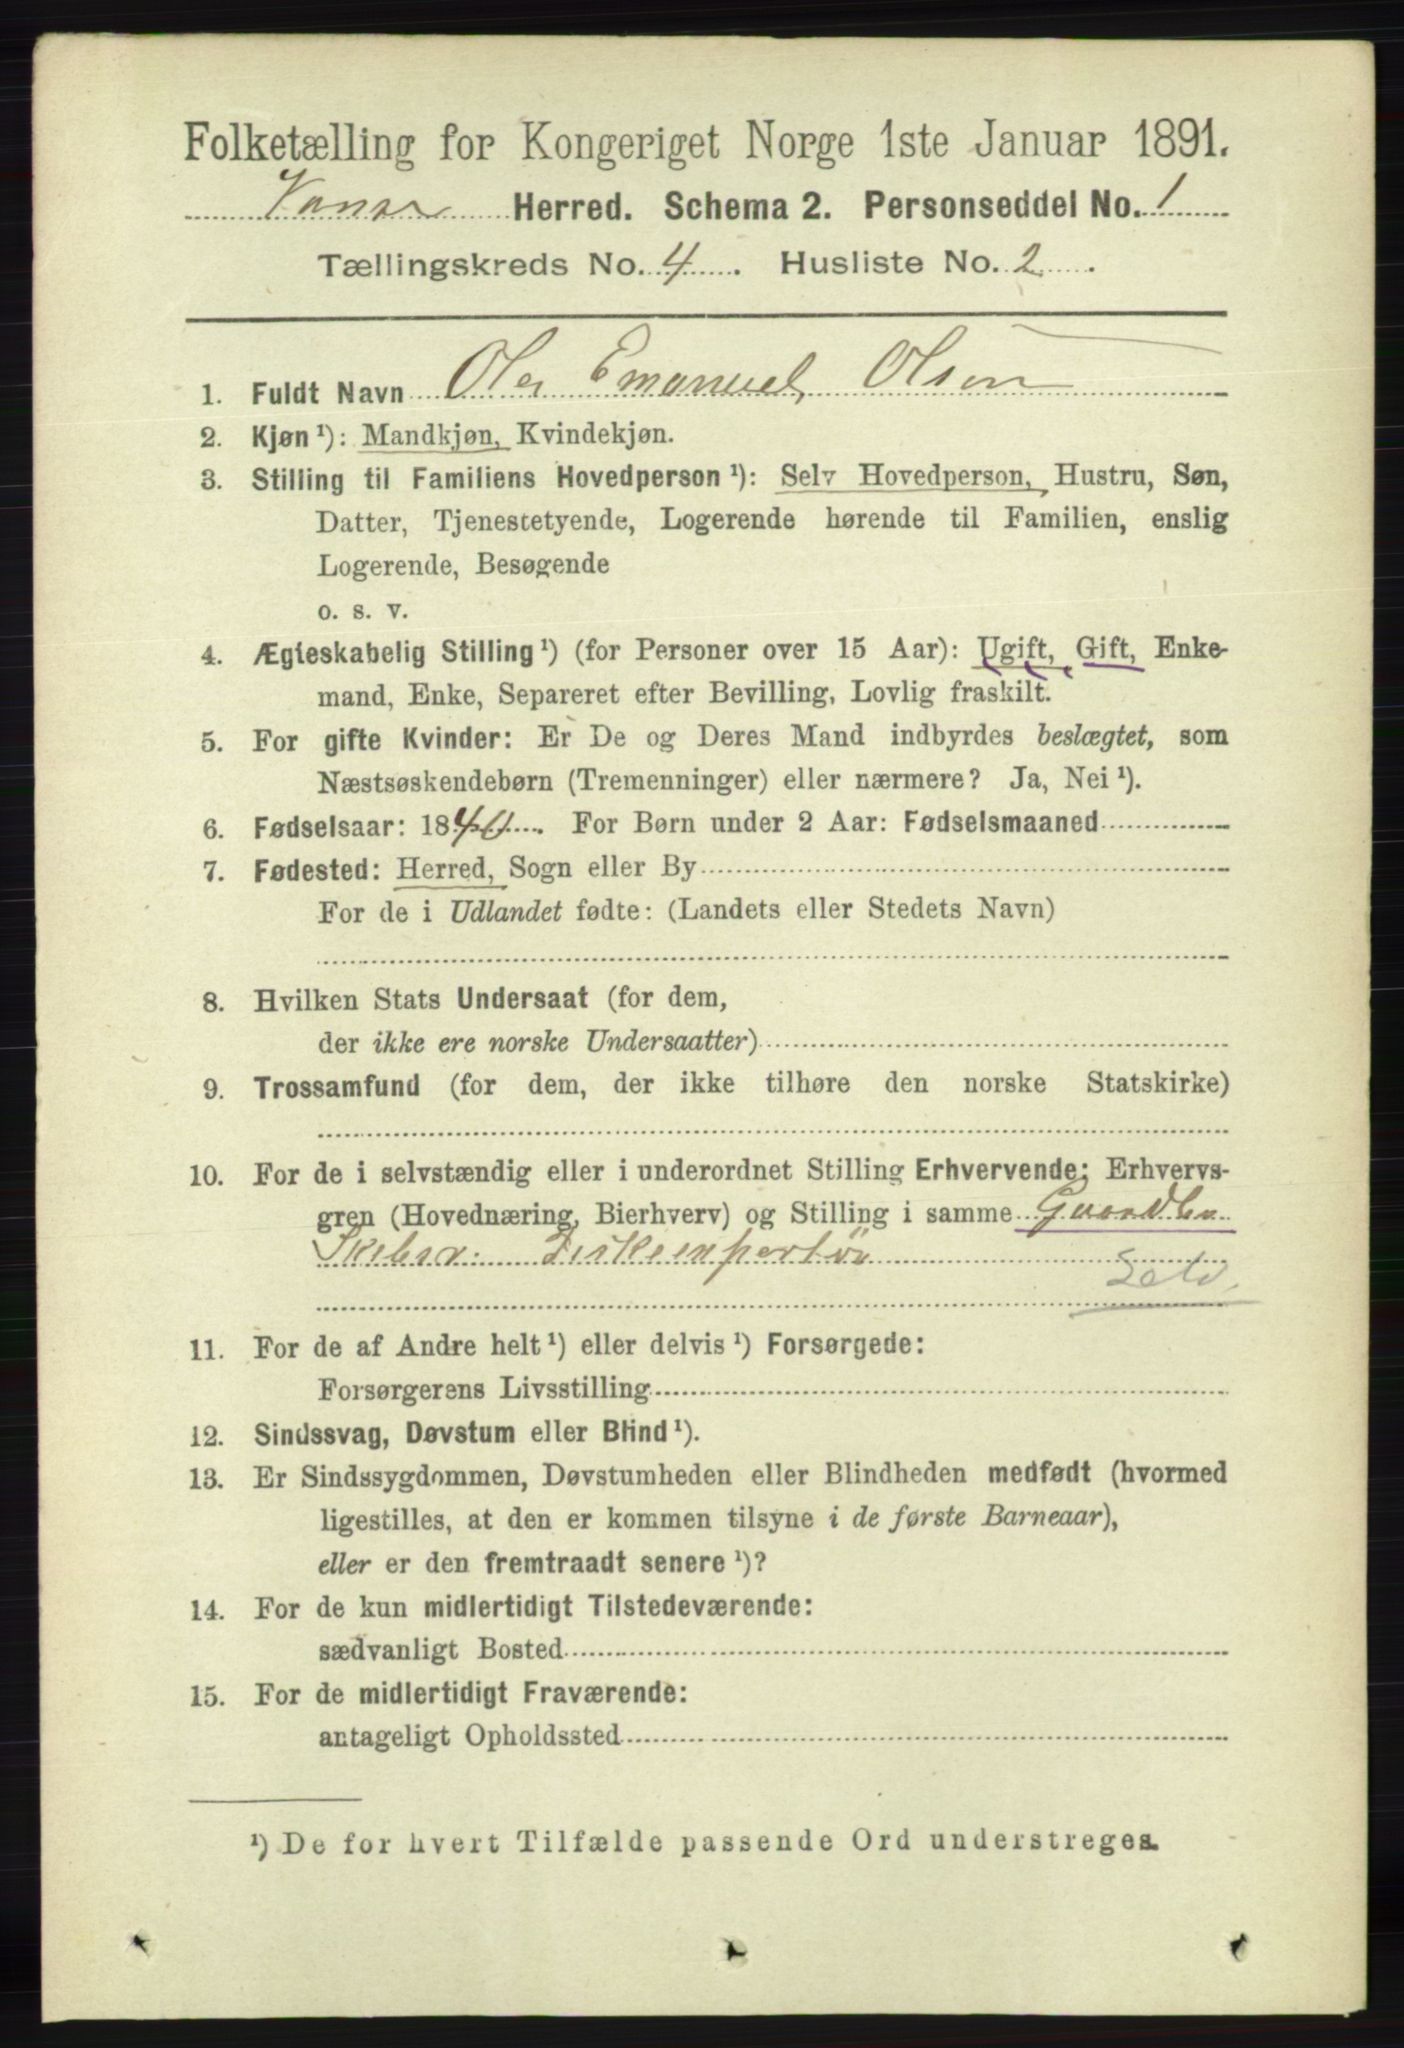 Folketælling for Kongeriget Norge 1ste Januar 1891.
Vanse Herred. Schema 2. Personseddel No. 1
Tællingskreds No. 4. Husliste No. 2.
1. Fuldt Navn Ole Emanuel Olsen
2. Kjøn ¹): Mandkjøn, Kvindekjøn.
3. Stilling til Familiens Hovedperson ¹): Selv Hovedperson, Hustru, Søn,
Datter, Tjenestetyende, Logerende hørende til Familien, enslig
Logerende, Besøgende
o. s. v.
4. Ægteskabelig Stilling ¹) (for Personer over 15 Aar): Ugift, Gift, Enke-
mand, Enke, Separeret efter Bevilling, Lovlig fraskilt.
5. For gifte Kvinder: Er De og Deres Mand indbyrdes beslægtet, som
Næstsøskendebørn (Tremenninger) eller nærmere? Ja, Nei ¹).
6. Fødselsaar: 1840. For Børn under 2 Aar: Fødselsmaaned
7. Fødested: Herred, Sogn eller By
For de i Udlandet fødte: (Landets eller Stedets Navn)
8. Hvilken Stats Undersaat (for dem,
der ikke ere norske Undersaatter)
9. Trossamfund (for dem, der ikke tilhøre den norske Statskirke)
10. For de i selvstændig eller i underordnet Stilling Erhvervende: Erhvervs-
gren (Hovednæring, Bierhverv) og Stilling i samme Gaardbr
Fiskeexportør
Selv.
11. For de af Andre helt ¹) eller delvis ¹) Forsørgede:
Forsørgerens Livsstilling
12. Sindssvag, Døvstum eller Blind ¹).
13. Er Sindssygdommen, Døvstumheden eller Blindheden medfødt (hvormed
ligestilles, at den er kommen tilsyne i de første Barneaar),
eller er den fremtraadt senere ¹)?
14. For de kun midlertidigt Tilstedeværende:
sædvanligt Bosted
15. For de midlertidigt Fraværende:
antageligt Opholdssted
¹) De for hvert Tilfælde passende Ord understreges.